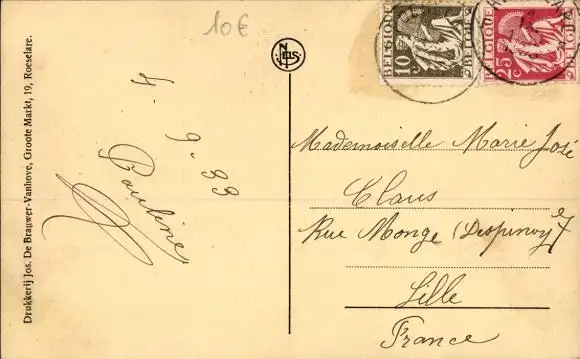 10€
Drukkerij Jos. De Brauwer-Vanhove, Groote Markt, 19, Roeselare.
NELS
4-9-33
Pauline
BELGIQUE
10 c
BELGIË
BELGIQUE
25 c
BELGIË
Mademoiselle Marie José
Claus
Rue Monge (Despinoy) 7
Lille
France